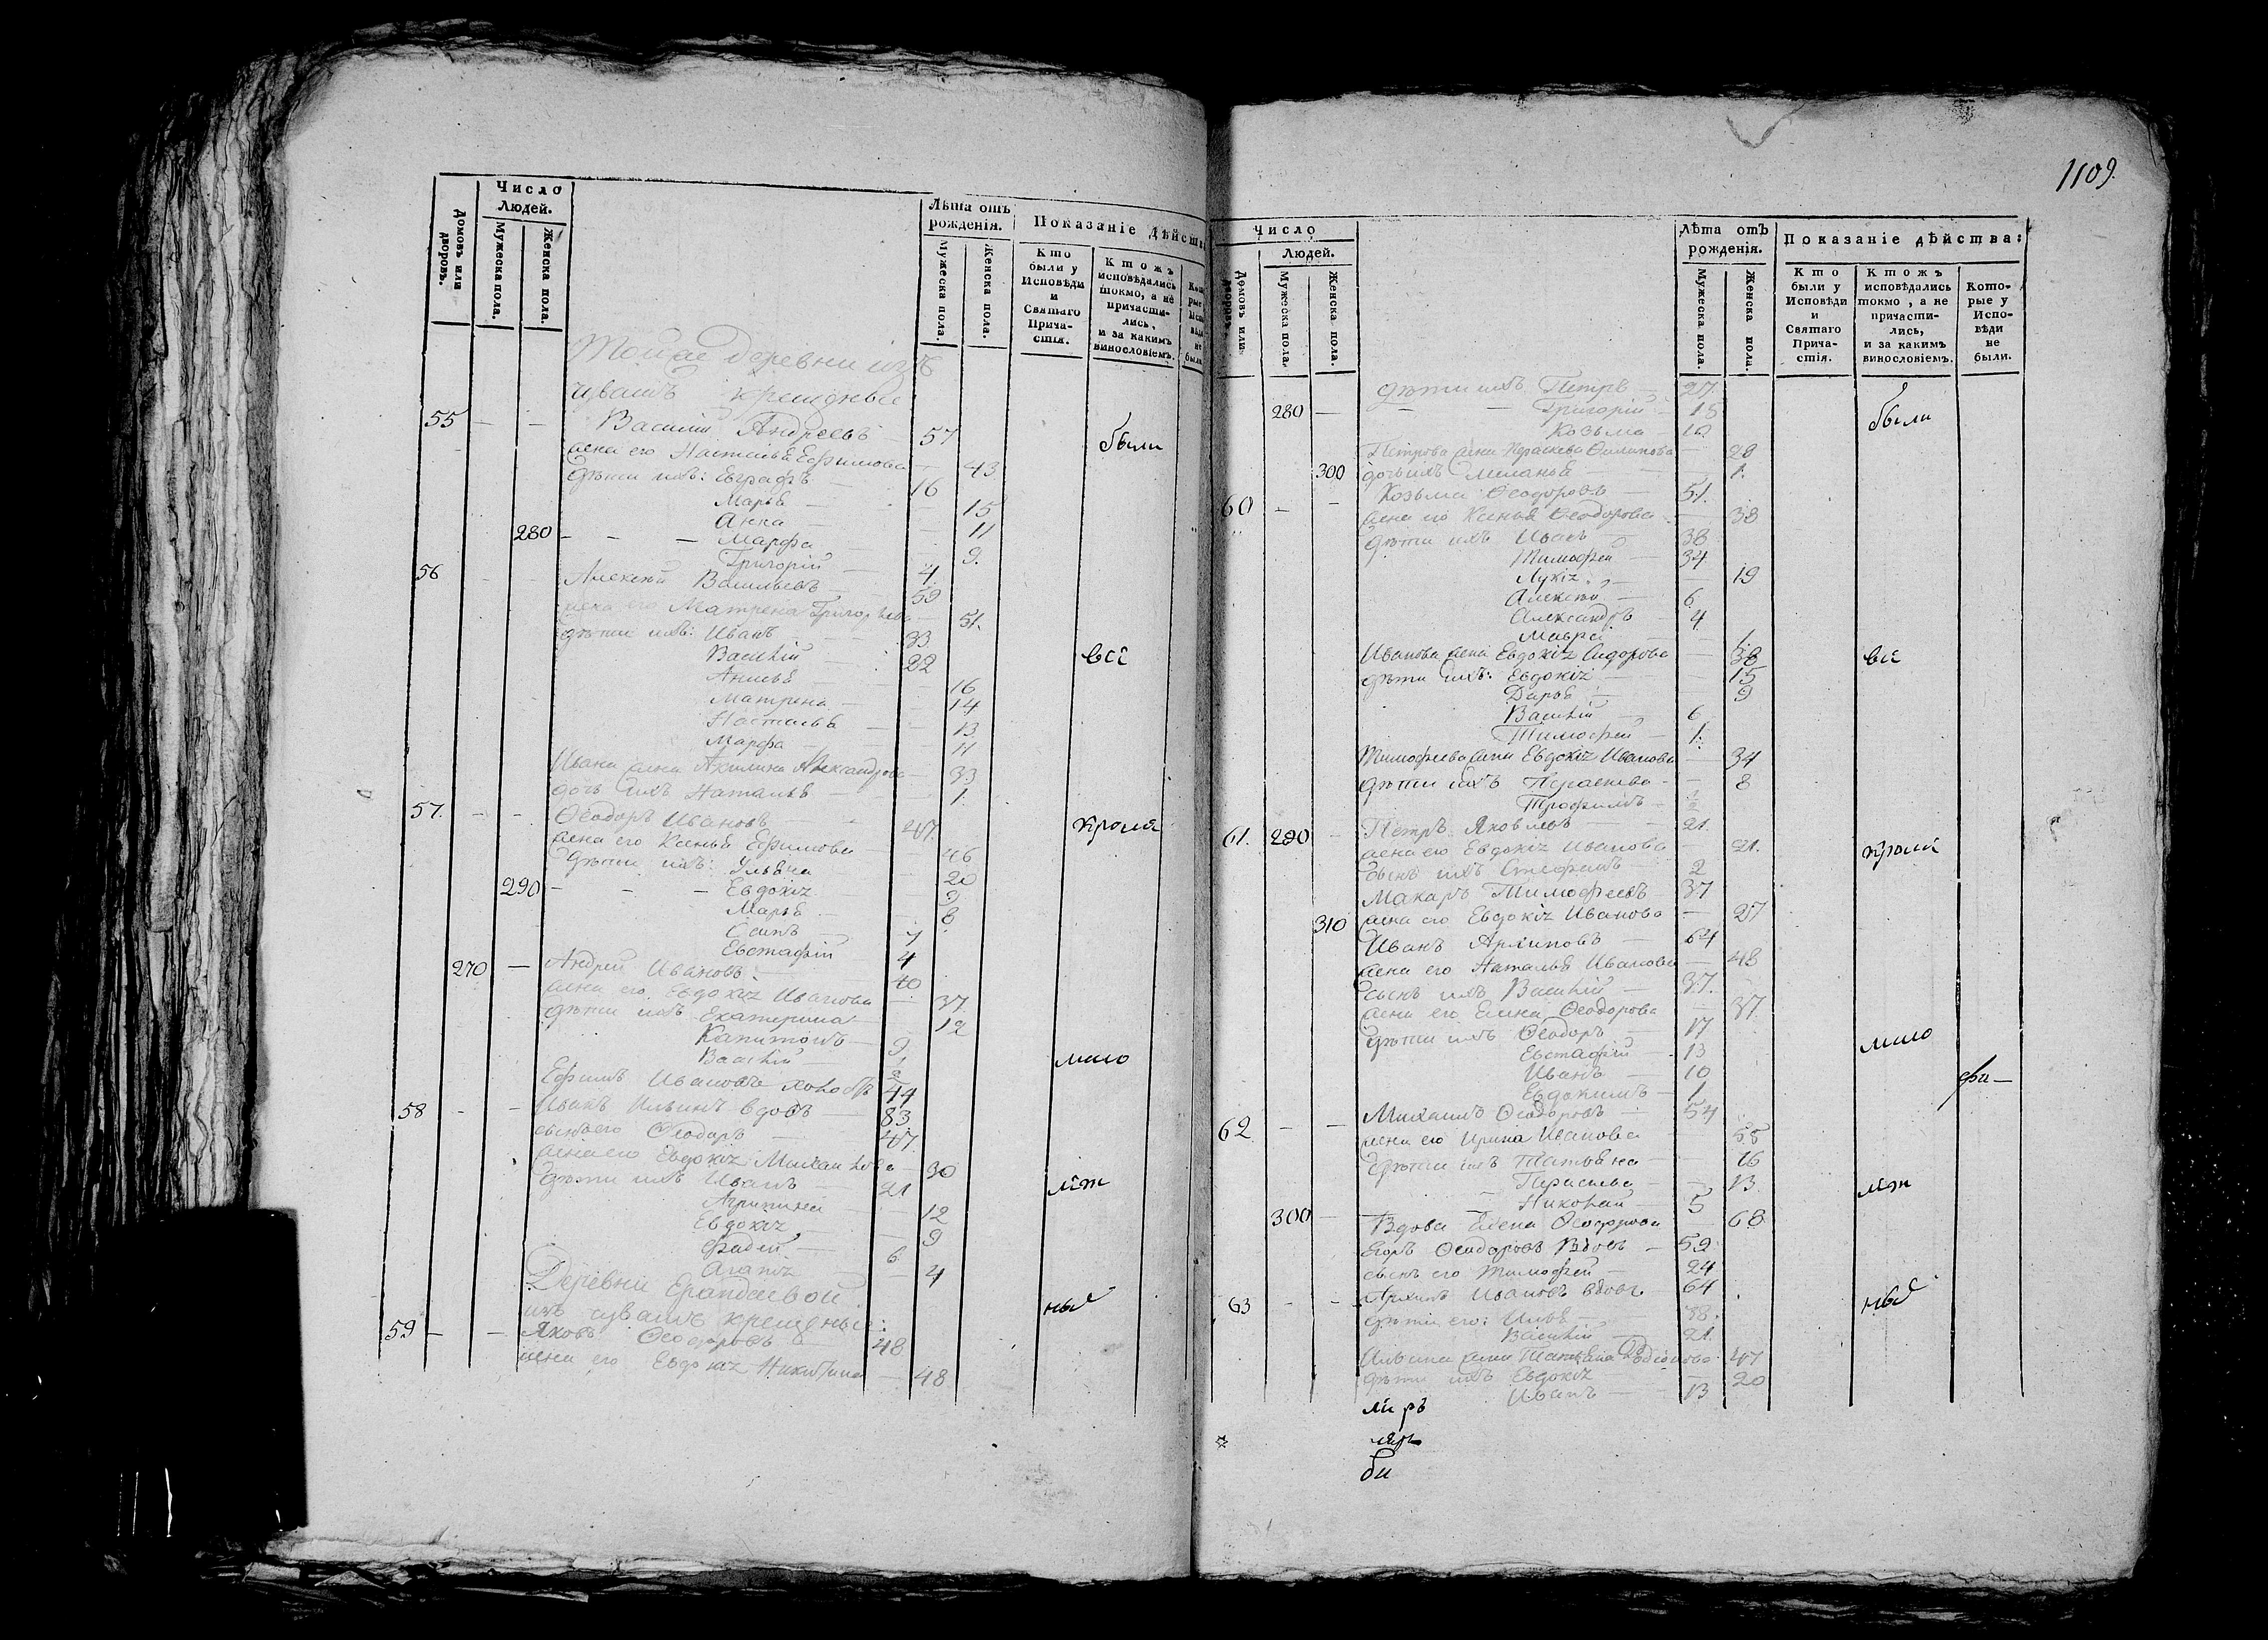 1109.
Домовъ или дворовъ.
Число Людей.
Мужеска пола.
Женска пола.
Лѣта отъ рожденія.
Мужеска пола.
Женска пола.
Показаніе дѣйств
Кто были у Исповѣди и Святаго Прича-стія.
Ктожъ исповѣдались токмо, а не причасти-лись, и за какимъ винословіемъ.
Тойже Деревни изъ
чувашъ крещеные
55 — — Василій Андреевъ 57 были
жена его Настасья Ефимова — 43
дѣти ихъ: Евграфъ — 16
Марья — 15
Анна — 11
280 — — — Марфа 9.
Григорій — 4
56 Алексѣй Васильевъ 59
жена его Матрена Григорьева — 51.
дѣти ихъ: Иванъ 33
Василій — 22 всѣ
Анисья 16
Матрена — 14
Настасья — 13
Марфа — 11
Ивана жена Акилина Александрова — 33
дочь ихъ Наталья — 1.
57. — — Ѳеодоръ Ивановъ 47. кромѣ
жена его Ксенья Ефимова 46
дѣти ихъ: Ульяна 20
290 — — — Евдокія 9
Марья — 8
Осипъ — 7
Евстафій 4
270 — Андрей Ивановъ 40
жена его Евдокія Иванова — 37
дѣти ихъ Екатерина — 12
Капитонъ — 9
Василій 2 мало
Ефимъ Ивановъ холостъ 44
58 — — Иванъ Ильинъ вдовъ — 83
сынъ его Ѳеодоръ — 47
жена его Евдокія Михайлова — 30
дѣти ихъ Иванъ — 21 лѣт
Агрипина — 12
Евдокія — 9
Фадей — 6
Агапія — 4
Деревни Ерандаевой
изъ чувашъ крещеные: ныхъ
59 — — Яковъ Ѳеодоровъ 48
жена его Евдокія Никитина — 48
Число
Домовъ или дворовъ.
Людей.
Мужеска пола.
Женска пола.
Лѣта отъ рожденія.
Мужеска пола.
Женска пола.
Показаніе дѣйства:
Кто были у Исповѣди и Святаго Прича-стія.
Ктожъ исповѣдались токмо, а не причасти-лись, и за какимъ винословіемъ.
Кото-рые у Испо-вѣди не были.
дѣти ихъ Петръ — 27.
280 — — — Григорій — 15 были
Козьма — 10
Петрова жена Параскева Филипова — 28
300 дочь ихъ Меланья — 1.
60 — — Козьма Ѳеодоровъ — 51.
жена его Ксенья Ѳеодорова — 38
дѣти ихъ Иванъ — 38
Тимофей — 34
Лукія — 19
Алексѣй — 6
Александръ — 4
Мавра 1.
Иванова жена Евдокія Сидорова — 38 всѣ
дѣти ихъ: Евдокія — 15
Дарья — 9
Василій — 6
Тимофей — 1.
Тимофеева жена Евдокія Иванова — 34
дѣти ихъ Параскева — 8
Трофимъ — 2
61. 290 — Петръ Яковлевъ — 21.
жена его Евдокія Иванова — 21. кромѣ
сынъ ихъ Стефанъ 2
Макаръ Тимофеевъ 37
310 жена его Евдокія Иванова — 27
Иванъ Архиповъ — 64
жена его Наталья Иванова — 48
сынъ ихъ Василій — 37.
жена его Елена Ѳеодорова 37
дѣти ихъ Ѳеодоръ — 17
Евстафій — 13 мало
Иванъ — 10
Евдокимъ — 1
62 — — Михаилъ Ѳеодоровъ — 54
жена его Ирина Иванова — 55
дѣти ихъ Татьяна — 16
Параскева — 13 лѣт
Николай — 5
300 — Вдова Елена Ѳеодорова — 68
Егоръ Ѳеодоровъ Вдовъ — 52
сынъ его Тимофей — 24
63 — — Архипъ Ивановъ вдовъ — 64 ныхъ
дѣти его: Илья — 38.
Василій — 21.
Ильина жена Татьяна Родіонова 47
дѣти ихъ Евдокія — 20
Иванъ — 13
би